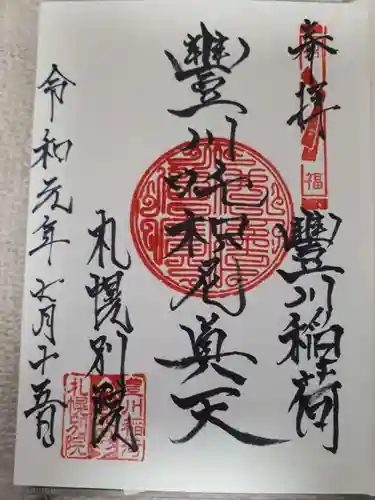 奉拝
豐川稲荷
豐川吒枳尼真天
札幌別院
令和元年七月十五日
福
札幌別院